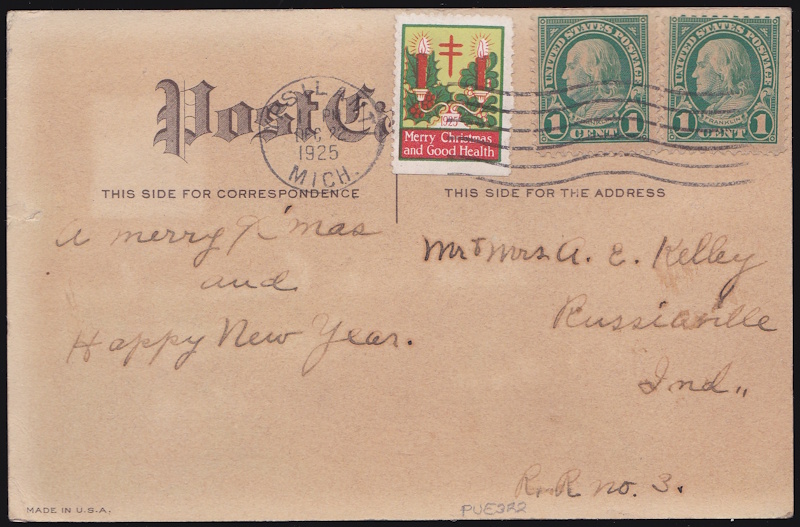 Post Ca
YPSILANTI
PM
DEC 22
1925
MICH.
1925
Merry Christmas
and Good Health
UNITED STATES POSTAGE
FRANKLIN
1 CENT 1
UNITED STATES POSTAGE
FRANKLIN
1 CENT 1
THIS SIDE FOR CORRESPONDENCE
THIS SIDE FOR THE ADDRESS
A merry X'mas
and
Happy New Year.
Mr & Mrs A. E. Kelley
Russiaville
Ind.,
R.R. no. 3.
PUE322
MADE IN U.S.A.